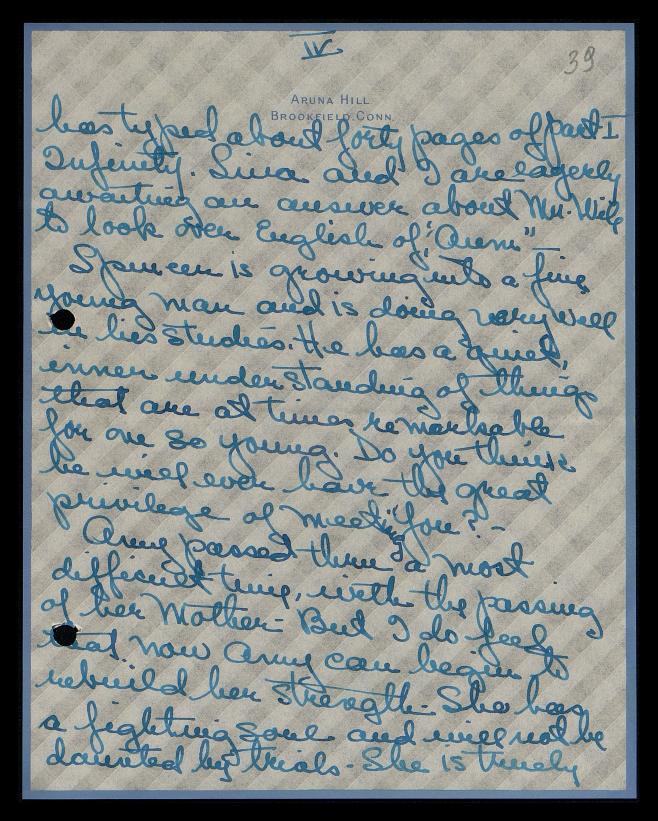 IV
39
ARUNA HILL
BROOKFIELD, CONN.
has typed about forty pages of part I
Infinity. Lina and I are eagerly
awaiting an answer about Mr.
to look over English of "Aum" —
Spencer is growing into a fine
young man and is doing very well
in his studies. He has a quiet,
inner understanding of things
that are at times remarkable
for one so young. Do you think
he will ever have the great
privilege of meeting You? -
Amy passed thru a most
difficult time, with the passing
of her Mother - But I do feel
that now Amy can begin to
rebuild her strength - She has
a fighting soul and will not be
daunted by trials - She is truely